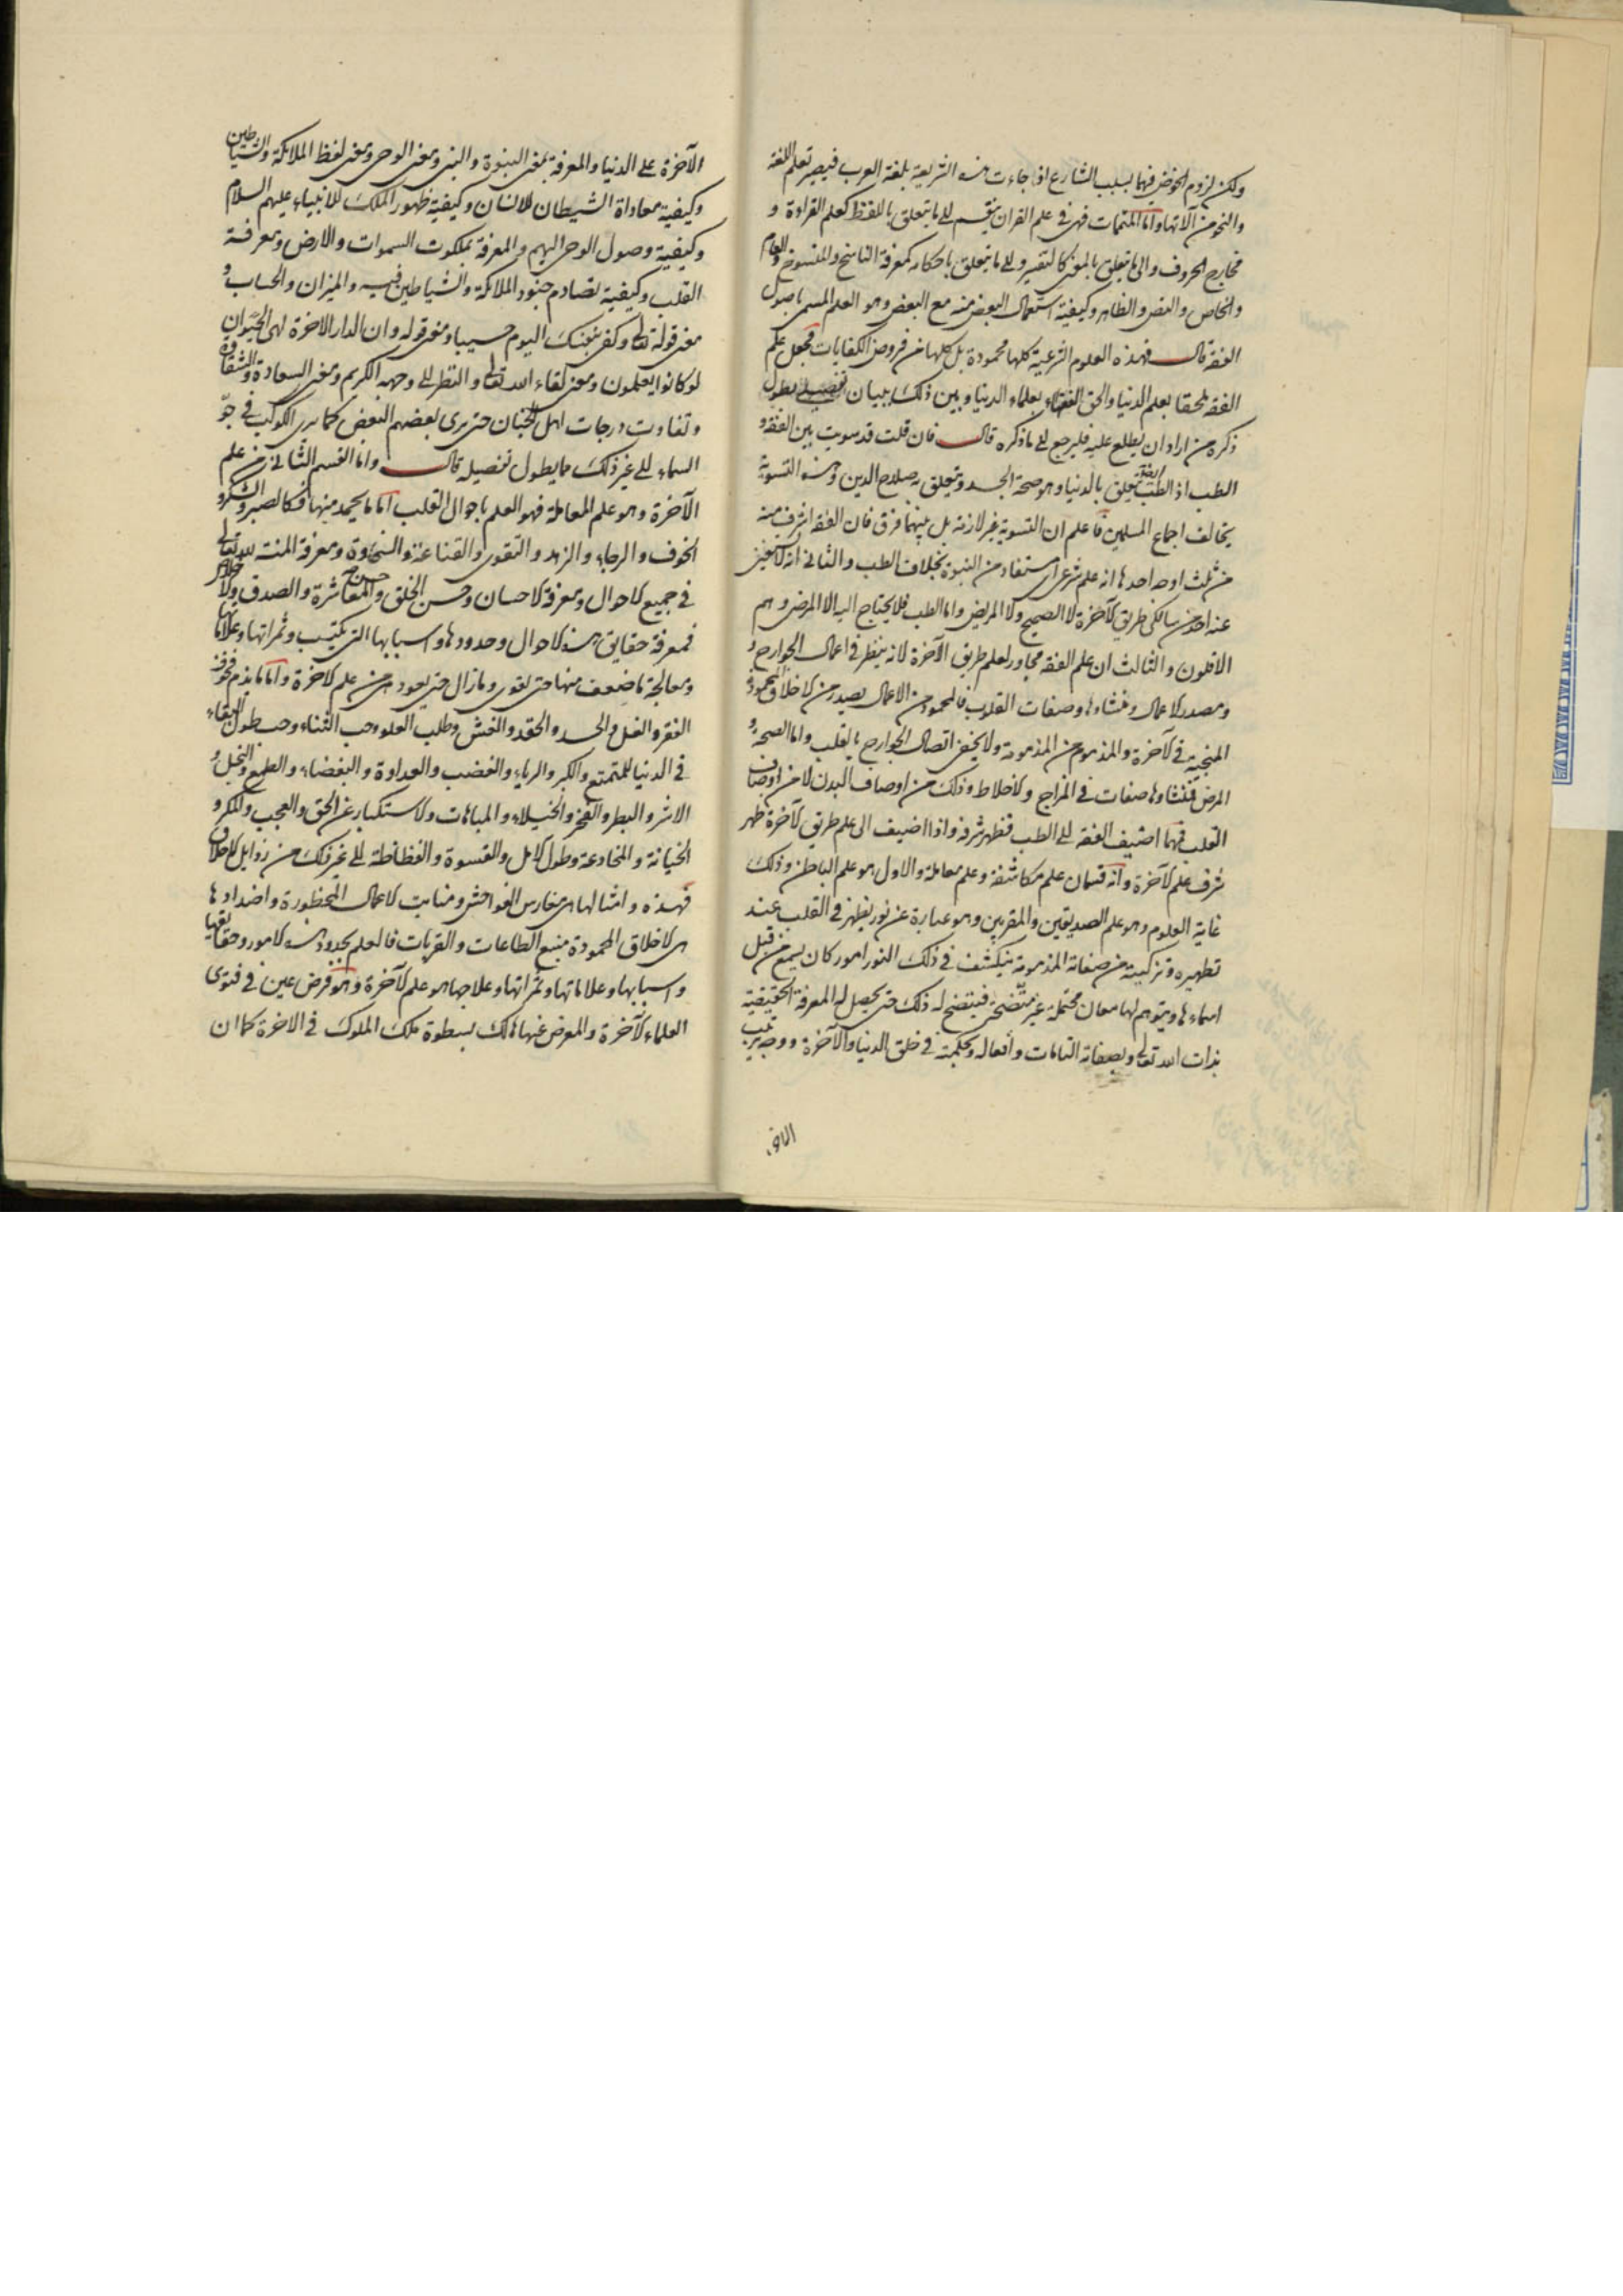 ولكن لزوم الخوض فيها بسبب الشارع اذا جاءت هذه الشريعة بلغة العرب فيصير تعلم اللغة
والنحو من آلاتها واما المتممات فهى فى علم القران ينقسم الى ما يتعلق باللفظ كعلم القراءة و
مخارج الحروف والى ما يتعلق بالمعنى كالتفسير والى ما يتعلق باحكامه كمعرفة الناسخ والمنسوخ والعام
والخاص والنص والظاهر وكيفية استعمال البعض منه مع البعض وهو العلم المسمى باصول
الفقه قال فهذه العلوم الشرعية كلها محمودة بل كلها من فروض الكفايات فجعل علم
الفقه ملحقا بعلم الدنيا والحق الفقهاء بعلماء الدنيا وبين ذلك ببيان تفصيلى يطول
ذكره من اراد ان يطلع عليه فليرجع الى ما ذكره قال فان قلت قد سويت بين الفقه و
الطب اذ الطب ايضا يتعلق بالدنيا وهو صحة الجسد ويتعلق به صلاح الدين وهذه التسوية
يخالف اجماع المسلمين فاعلم ان التسوية غير لازمة بل بينهما فرق فان الفقه اشرف منه
من ثلث اوجه احدها انه علم شرعى اى مستفاد من النبوة بخلاف الطب والثانى انه لا يستغنى
عنه احد من سالكى طريق الآخرة لا الصحيح ولا المريض واما الطب فلا يحتاج اليه الا المرضى وهم
الاقلون والثالث ان علم الفقه مجاور لعلم طريق الآخرة لانه ينظر فى اعمال الجوارح و
ومصدر الاعمال ومنشاءها وصفات القلوب فالمحمود من الاعمال يصدر من الاخلاق المحمودة
المنجية فى الآخرة والمذموم من المذمومة ولا يخفى اتصال الجوارح بالقلب واما الصحة و
المرض فمنشاوها صفات فى المزاج والاخلاط وذلك من اوصاف البدن لا من اوصاف
القلب فمهما اضيف الفقه الى الطب فظهر شرفه واذا اضيف الى علم طريق الآخرة ظهر
شرف علم الآخرة وانه قسمان علم مكاشفة وعلم معاملة والاول هو علم الباطن وذلك
غاية العلوم وهو علم الصديقين والمقربين وهو عبارة عن نور يظهر فى القلب عند
تطهيره وتزكيته من صفاته المذمومة ينكشف فى ذلك النور امور كان يسمع من قبل
اسماءها ويتوهم لها معان مجملة غير متضحة فيتضح له ذلك حتى يحصل له المعرفة الحقيقية
بذات الله تعالى وبصفاته التامات وافعاله وحكمته فى خلق الدنيا والآخرة ووجه ترتيب
الآخرة على الدنيا والمعرفة بمعنى النبوة والنبى ومعنى الوحى ومعنى لفظ الملائكة والشياطين
وكيفية معاداة الشيطان للانسان وكيفية ظهور الملك للانبياء عليهم السلام
وكيفية وصول الوحى اليهم والمعرفة بملكوت السموات والارض ومعرفة
القلب وكيفية تصادم جنود الملائكة والشياطين فيه والميزان والحساب و
معنى قوله تعالى وكفى بنفسك اليوم حسيبا ومعنى قوله وان الدار الاخرة لهى الحيوان
لو كانوا يعلمون ومعنى لقاء الله تعالى والنظر الى وجهه الكريم ومعنى السعادة والشقاوة
وتفاوت درجات اهل الجنان حتى يرى بعضهم البعض كما يرى الكوكب فى جو
السماء الى غير ذلك مما يطول تفصيله قال واما القسم الثانى من علم
الآخرة وهو علم المعاملة فهو العلم باحوال القلب اما ما يحمد منها فكالصبر والشكر و
الخوف والرجاء والزهد والتقوى والقناعة والسخاوة ومعرفة المنة لله تعالى
فى جميع الاحوال ومعرفة الاحسان وحسن الخلق وحسن المعاشرة والصدق والاخلاص
فمعرفة حقايق هذه الاحوال وحدودها واسبابها التى يكتسب وثمراتها وعلاماتها
ومعالجة ما ضعف منها حتى يقوى وما زال حتى يعود من علم الآخرة واما ما يذم فخوف
الفقر والغل والحسد والحقد والغش وطلب العلو وحب الثناء وحب طول البقاء
فى الدنيا للتمتع والكبر والرياء والغضب والعداوة والبغضاء والطمع والبخل و
الاشر والبطر والفخر والخيلاء والمباهات والاستكبار عن الحق والعجب والمكر و
الخيانة والمخادعة وطول الامل والقسوة والفظاظة الى غير ذلك من رذايل الاخلاق
فهذه وامثالها هى مغارس الفواحش ومنابت الاعمال المحظورة واضدادها
هى الاخلاق المحمودة منبع الطاعات والقربات فالعلم بحدود هذه الامور وحقايقها
واسبابها وعلاماتها وثمراتها وعلاجها هو علم الآخرة وهو فرض عين فى فتوى
العلماء الآخرة والمعرض عنها هالك بسطوة ملك الملوك فى الاخرة كما ان